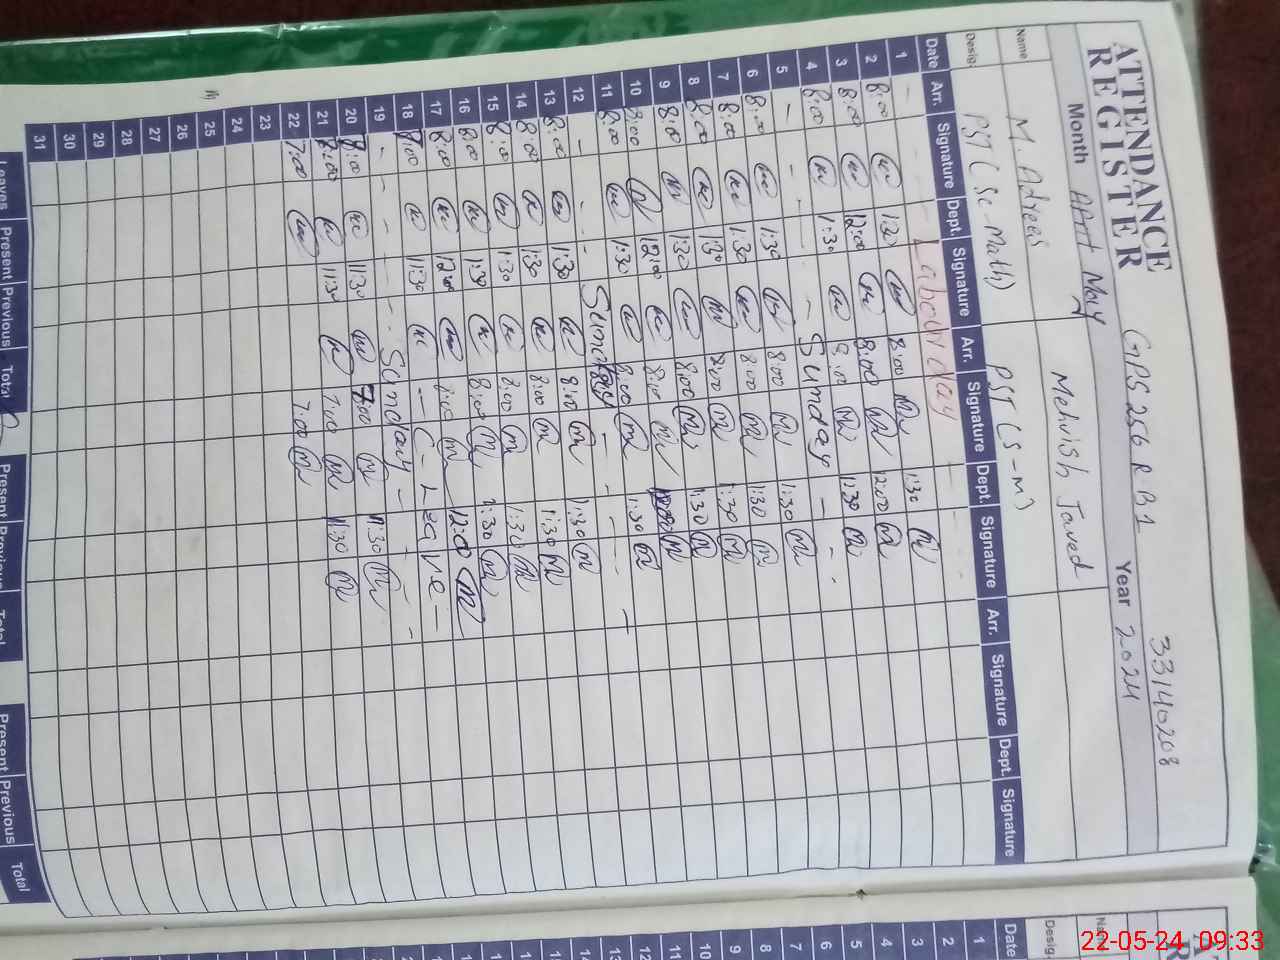 ATTENDANCE
REGISTER
GPS 256 R.B 1
33140208
Month May
Year 2024
Name M. Adrees Mehvish Javed
Desig. PST (Sc-Math) PST (S-M)
Date Arr. Signature Dept. Signature Arr. Signature Dept. Signature Arr. Signature Dept. Signature
1 - Labour day -
2 8:00 1:30 8:00 1:30
3 8:00 12:00 8:00 12:00
4 8:00 1:30 8:00 1:30
5 - - - - Sunday - -
6 8:00 1:30 8:00 1:30
7 8:00 1:30 8:00 1:30
8 8:00 1:30 8:00 1:30
9 8:00 1:30 8:00
10 8:00 12:00 8:00
11 8:00 1:30 8:00 1:30
12 - - Sunday - - -
13 8:00 1:30 8:00 1:30
14 8:00 1:30 8:00 1:30
15 8:00 1:30 8:00 1:30
16 8:00 1:30 8:00 1:30
17 8:00 12:00 8:00 12:00
18 8:00 11:30 - C-Leave -
19 - - - Sunday - - -
20 7:00 11:30 7:00 11:30
21 11:30 7:00 11:30
22 7:00 7:00
23
24
25
26
27
28
29
30
31
Leaves Present Previous Total Present Previous Total Present Previous Total
Date
1
2
3
4
5
6
7
8
9
10
11
12
13
22-05-24 09:33